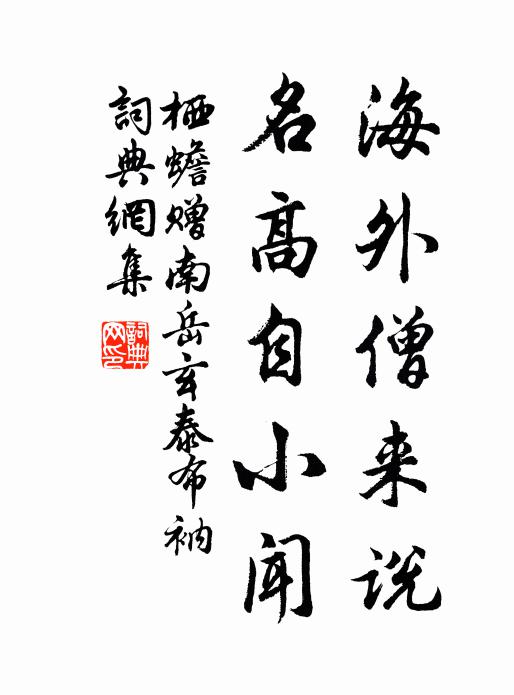 海外僧来説
名高自小闻
栖蟾赠南岳玄泰布衲
詞典網集
詞典網印